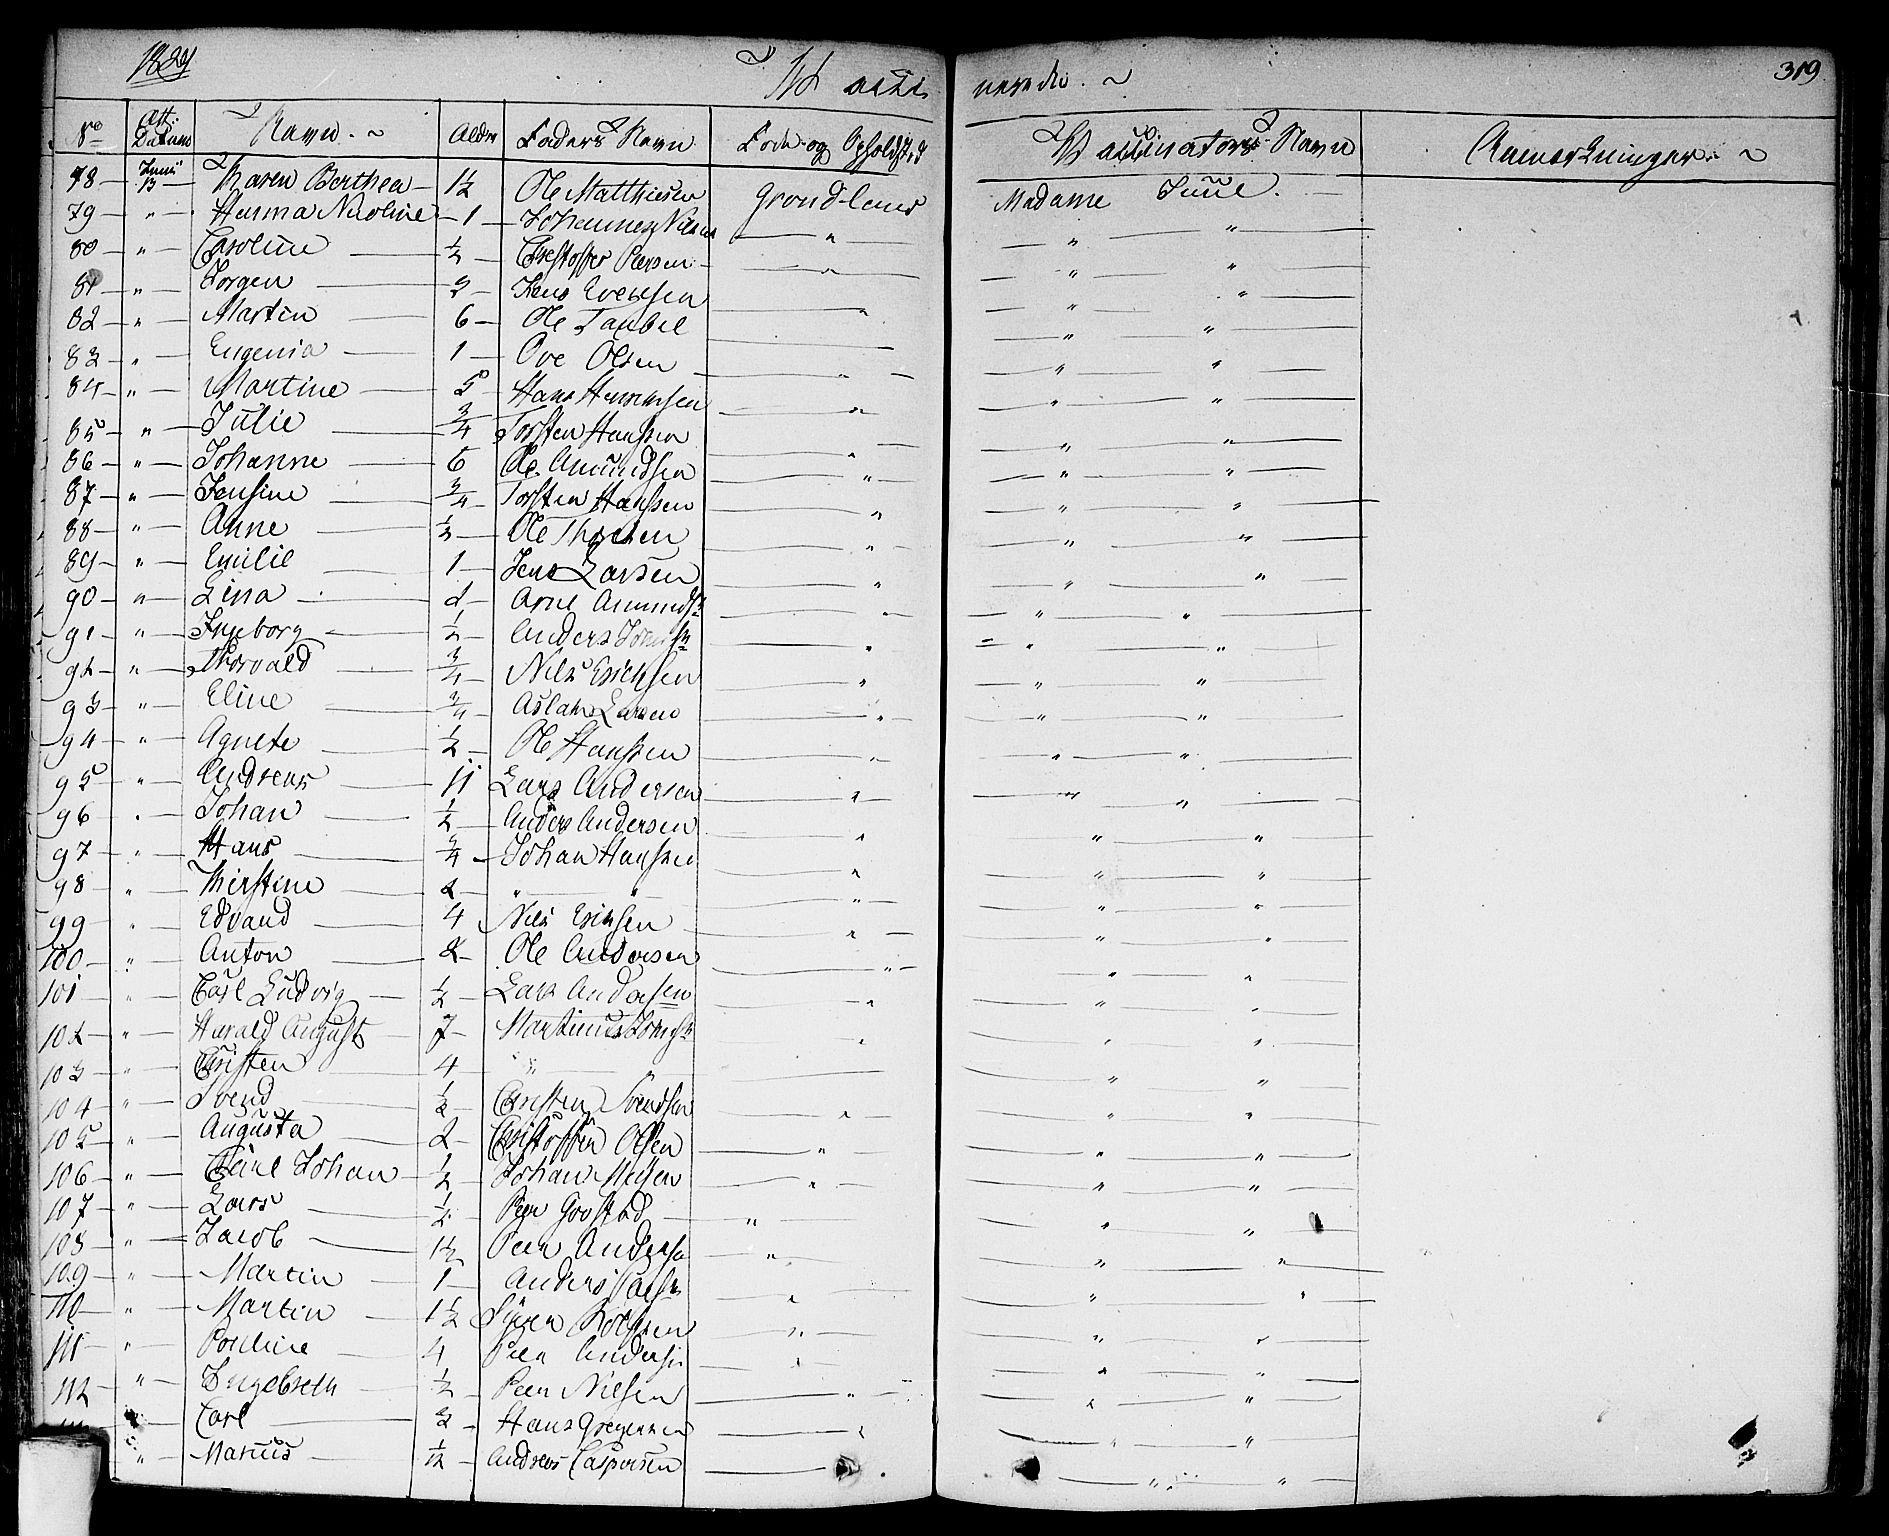 1824 Vacci nerede. 319
No Att: Datum Navn Alder Faders Navn Føde og Opholdsted Vaccinators Navn Anmerkninger
78 Junii 13 Karen Berthea 1½ Ole Matthiesen Grønd-land Madame Juul.
79 " Hanna Nicoline 1 Johannes Nilsen " " "
80 " Caroline ½ Christoffer Persen " " "
81 " Jørgen 3 Jens Evensen " " "
82 " Martin 6 Ole Taubel " " "
83 " Eugenia 1 Ove Olsen " " "
84 " Martine 5 Hans Hansen " " "
85 " Julie ¾ Torsten Hanssen " " "
86 " Johanne 6 Ole Amundsen " " "
87 " Jensine ¾ Torsten Hanssen " " "
88 " Anne ½ Ole Thorsen " " "
89 " Emilie 1 Jens Larsen " " "
90 " Lina 2 Arne Amunds " " "
91 " Ingeborg ½ Anders " " "
92 " Thorvald ¾ Nils Erichsen " " "
93 " Eline ¾ Aslak Larsen " " "
94 " Agnete ½ Ole Hanssen " " "
95 " Andreas 11 Lars Andersen " " "
96 " Johan ½ Anders Andersen " " "
97 " Hans ¾ Johan Hanssen " " "
98 " Kirstine 2 " " " " "
99 " Edvard 4 Nils Eriksen " " "
100 " Anton 2 Ole Andersen " " "
101 " Carl Ludvig ½ Lars Andersen " " "
102 " Harald August 7 Martinus " " "
103 " Christen 4 " " " " "
104 " Svend ½ Christen Svendsen " " "
105 " Augusta 2 Christoffer Olsen " " "
106 " Carl Johan ½ Johan Nilsen " " "
107 " Lars ½ Peer " " "
108 " Jacob 1½ Peer Andersen " " "
109 " Martin 1 Anders " " "
110 " Martin 1½ Søren " " "
111 " Pouline 4 Peer Andersen " " "
112 " Ingebreth ½ Peer Nilsen " " "
Carl Hans Gregersen " " "
" Marius Andreas Caspersen " "